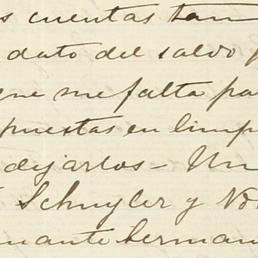 s cuentas tan
dato del saldo p
que me falta pa
puestas en limp
dejarlos - Un
Schuyler y No
mante herman